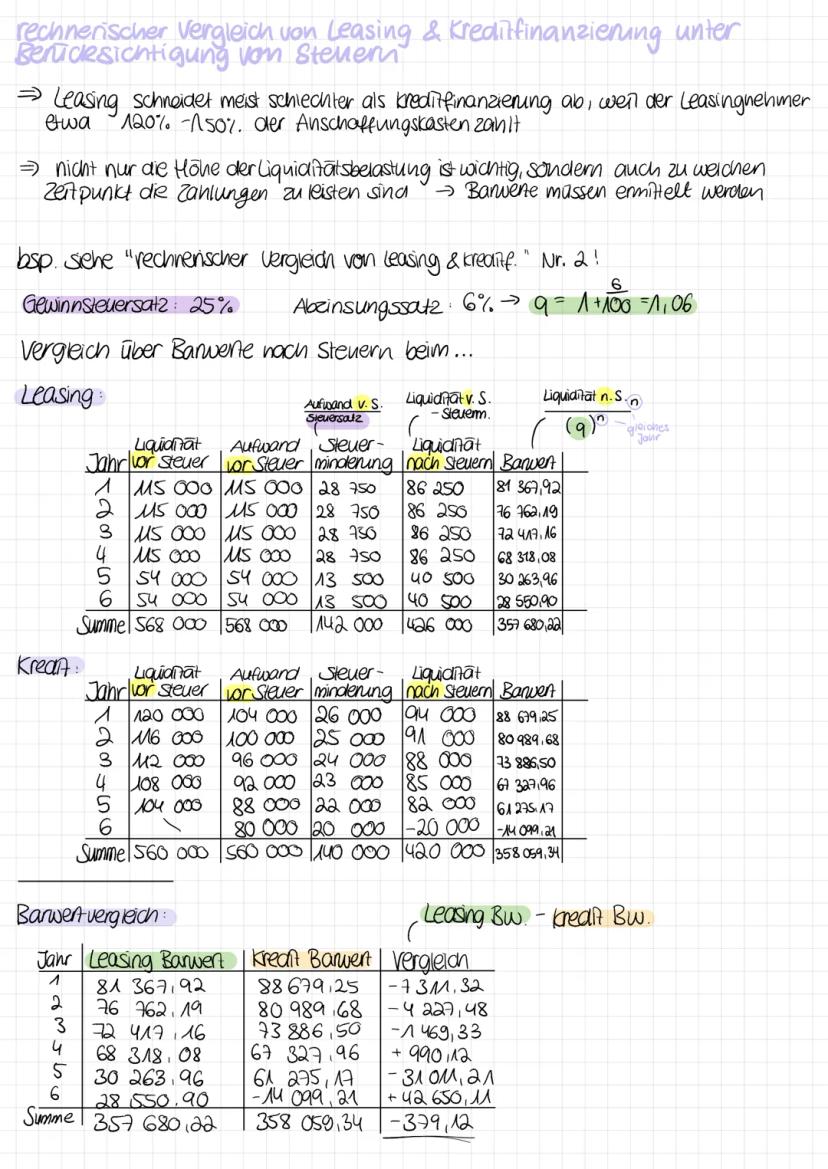 rechnerischer Vergleich von Leasing & Kreditfinanzierung unter
Berücksichtigung von Steuern
⇒ Leasing schneidet meist schlechter als Kreditfinanzierung ab, weil der Leasingnehmer
etwa 120% - 150% der Anschaffungskosten zahlt
⇒ nicht nur die Höhe der Liquiditätsbelastung ist wichtig, sondern auch zu welchen
Zeitpunkt die Zahlungen zu leisten sind → Barwerte müssen ermittelt werden
bsp. siehe "rechnerischer Vergleich von Leasing & Kreditf." Nr. 2!
Gewinnsteuersatz: 25% Abzinsungssatz: 6% → q = 1 + 6/100 = 1,06
Vergleich über Barwerte nach Steuern beim...
Leasing:
Aufwand v. S. Liquidität v. S. Liquidität n. S. n
Steuersatz - Steuerm. (q)ⁿ - gleiches
Jahr
Liquidität Aufwand Steuer- Liquidität
Jahr vor Steuer vor Steuer minderung nach Steuern Barwert
1 115 000 115 000 28 750 86 250 81 367,92
2 115 000 115 000 28 750 86 250 76 762,19
3 115 000 115 000 28 750 86 250 72 417,16
4 115 000 115 000 28 750 86 250 68 318,08
5 54 000 54 000 13 500 40 500 30 263,96
6 54 000 54 000 13 500 40 500 28 550,90
Summe 568 000 568 000 142 000 426 000 357 680,22
Kredit:
Liquidität Aufwand Steuer- Liquidität
Jahr vor Steuer vor Steuer minderung nach Steuern Barwert
1 120 000 104 000 26 000 94 000 88 679,25
2 116 000 100 000 25 000 91 000 80 989,68
3 112 000 96 000 24 000 88 000 73 886,50
4 108 000 92 000 23 000 85 000 67 327,96
5 104 000 88 000 22 000 82 000 61 275,17
6 \ 80 000 20 000 -20 000 -14 099,21
Summe 560 000 560 000 140 000 420 000 358 059,34
Barwertvergleich: Leasing Bw. - Kredit Bw.
Jahr Leasing Barwert Kredit Barwert Vergleich
1 81 367,92 88 679,25 -7 311,32
2 76 762,19 80 989,68 -4 227,48
3 72 417,16 73 886,50 -1 469,33
4 68 318,08 67 327,96 + 990,12
5 30 263,96 61 275,17 -31 011,21
6 28 550,90 -14 099,21 +42 650,11
Summe 357 680,22 358 059,34 -379,12